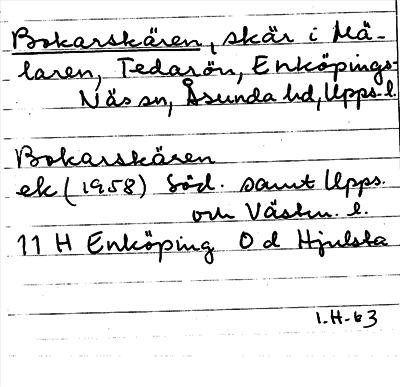 Bokarskären, skär i Mä-
laren, Tedarön, Enköpings-
Näs sn, Åsunda hd, Upps. l.
Bokarskären
ek (1958) Söd. samt Upps.
och Västm. l.
11 H Enköping 0 d Hjulsta
1-H-63